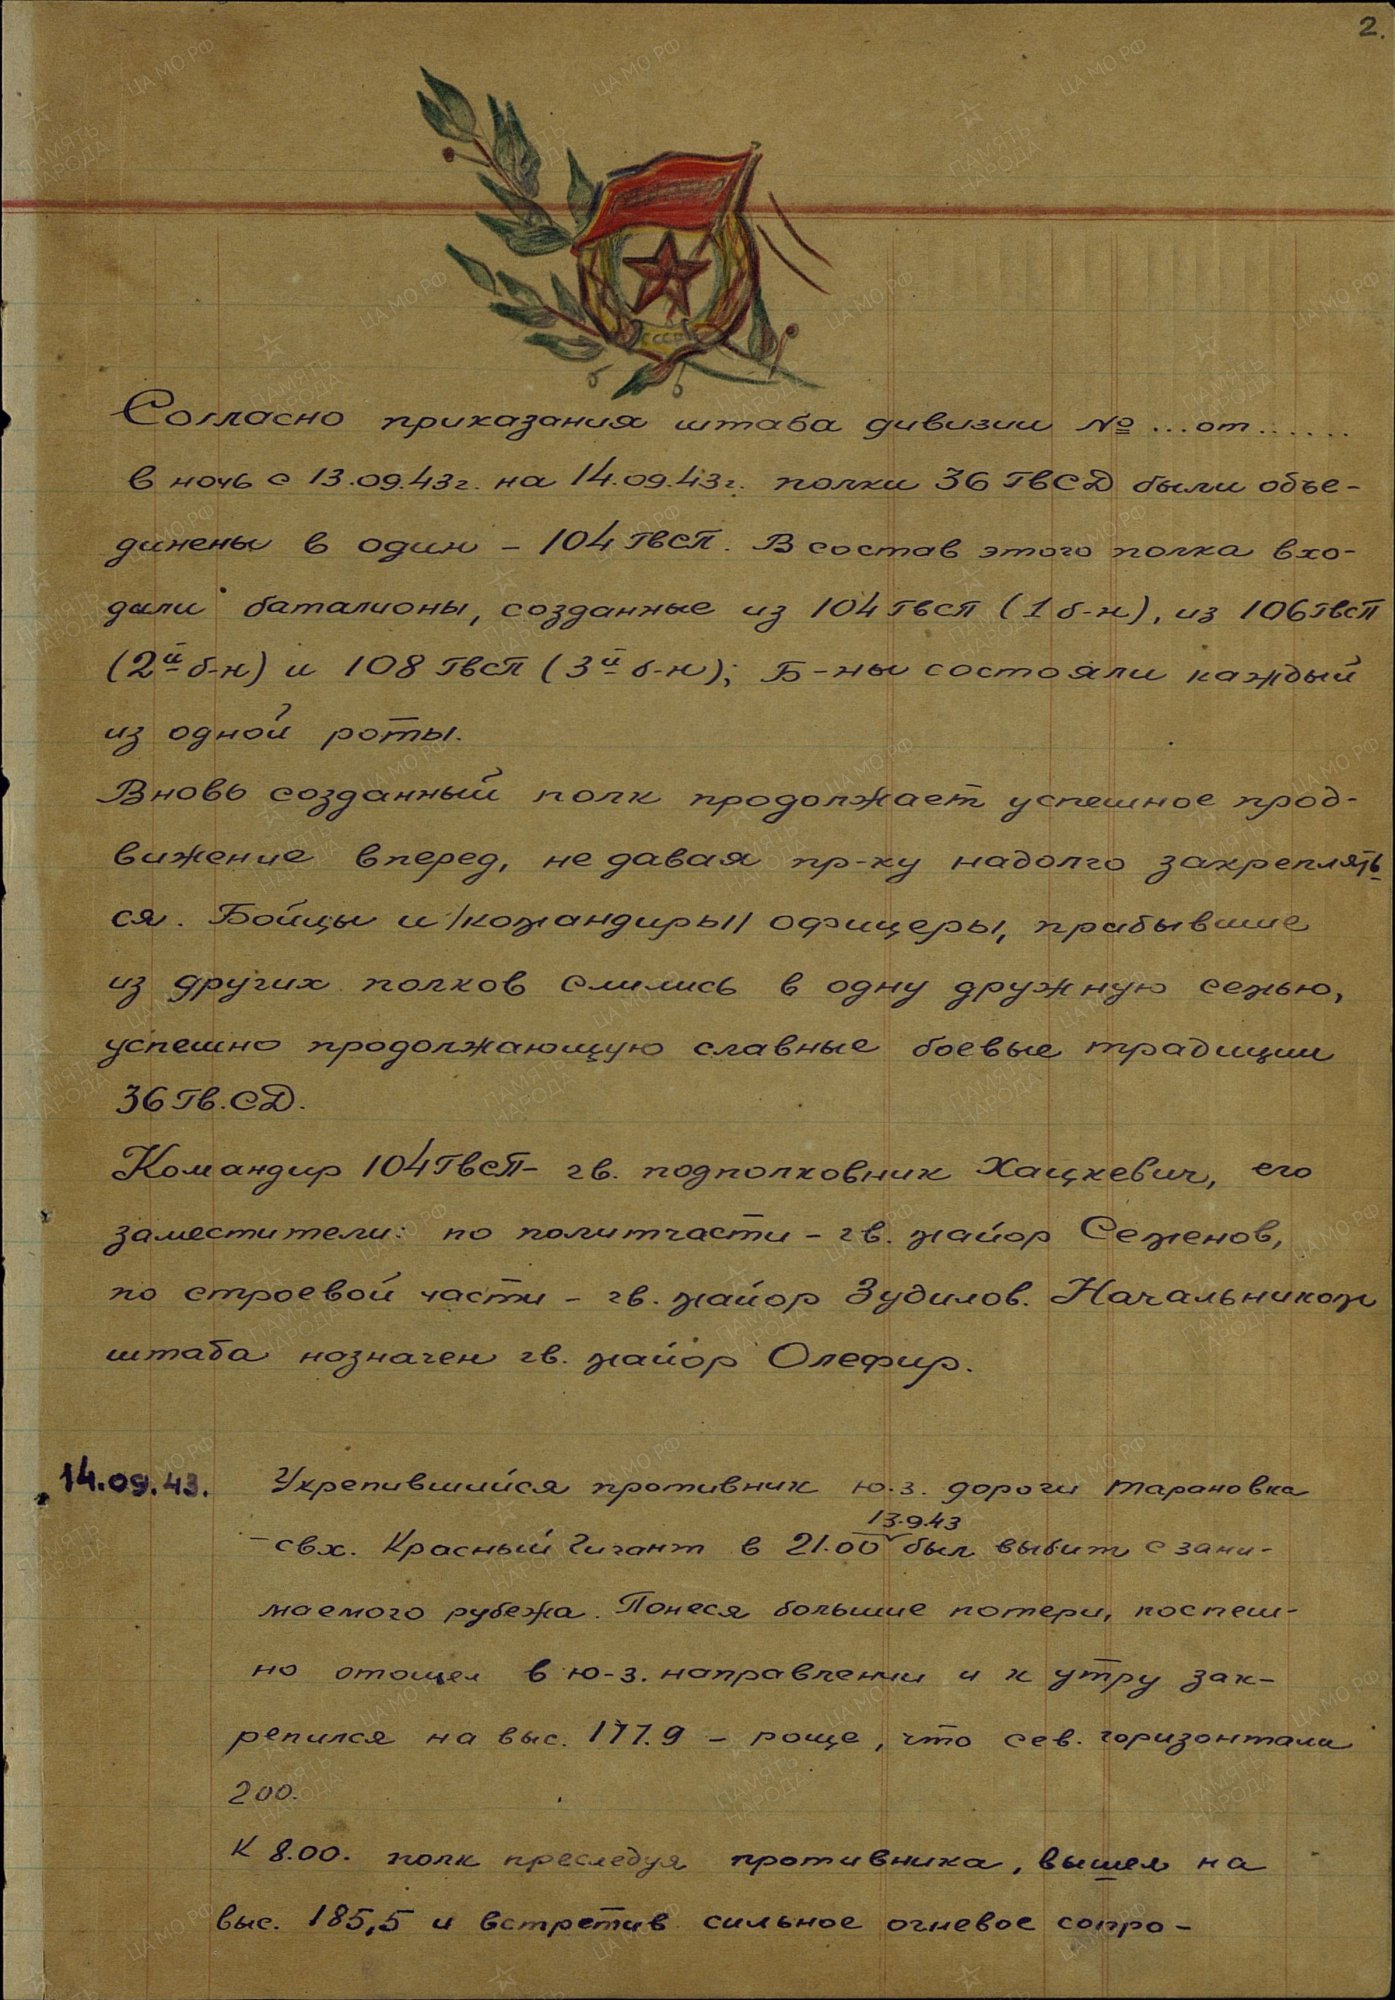 2.
Согласно приказания штаба дивизии № ... от ......
в ночь с 13.09.43г. на 14.09.43г. полки 36 ГвСД были объе-
динены в один - 104 ГвСП. В состав этого полка вхо-
дили батальоны, созданные из 104 ГвСП (1 б-н), из 106 ГвСП
(2й б-н) и 108 ГвСП (3й б-н); Б-ны состояли каждый
из одной роты.
Вновь созданный полк продолжает успешное прод-
вижение вперед, не давая пр-ку надолго закреплять-
ся. Бойцы и /командиры/ офицеры, прибывшие
из других полков слились в одну дружную семью,
успешно продолжающую славные боевые традиции
36 Гв. СД.
Командир 104 ГвСП - гв. подполковник Хацкевич, его
заместители: по политчасти - гв. майор Семенов,
по строевой части - гв. майор Зудилов. Начальником
штаба назначен гв. майор Олефир.
14.09.43. Укрепившийся противник ю.з. дороги Тарановка
13.9.43
- свх. Красный Гигант в 21.00 был выбит с зани-
маемого рубежа. Понеся большие потери, поспеш-
но отошел в ю-з. направлении и к утру зак-
репился на выс. 177.9 - роще, что сев. горизонтали
200.
К 8.00. полк преследуя противника, вышел на
выс. 185,5 и встретив сильное огневое сопро-